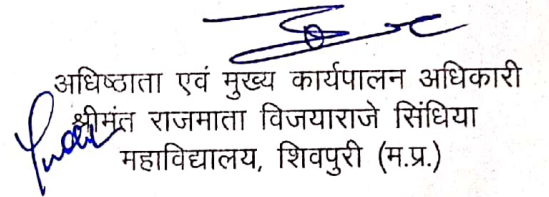 अधिष्ठाता एवं मुख्य कार्यपालन अधिकारी
श्रीमंत राजमाता विजयाराजे सिंधिया
महाविद्यालय, शिवपुरी (म.प्र.)